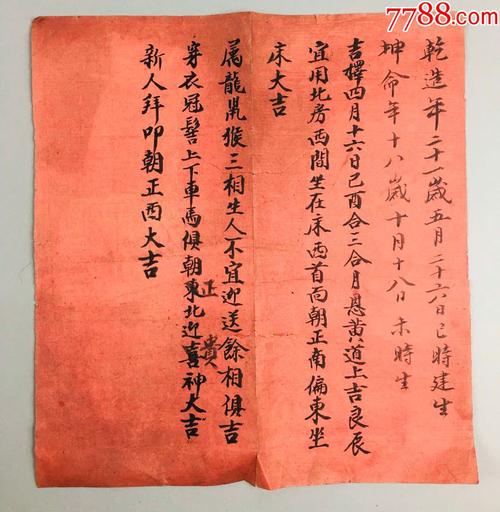 7788.com
乾造年二十一歲五月二十六日巳時建生
坤命年十八歲十月十八日未時生
吉擇四月十六日己酉合三合月恩黄道上吉良辰
宜用北房西間坐在床西首面朝正南偏東坐
床大吉
属龍鼠猴三相生人不宜迎送餘相俱吉
穿衣冠髻上下車馬俱朝東北迎喜神大吉
正貴
新人拜叩朝正西大吉